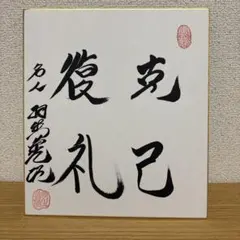 克己
復礼
名人 羽生善治